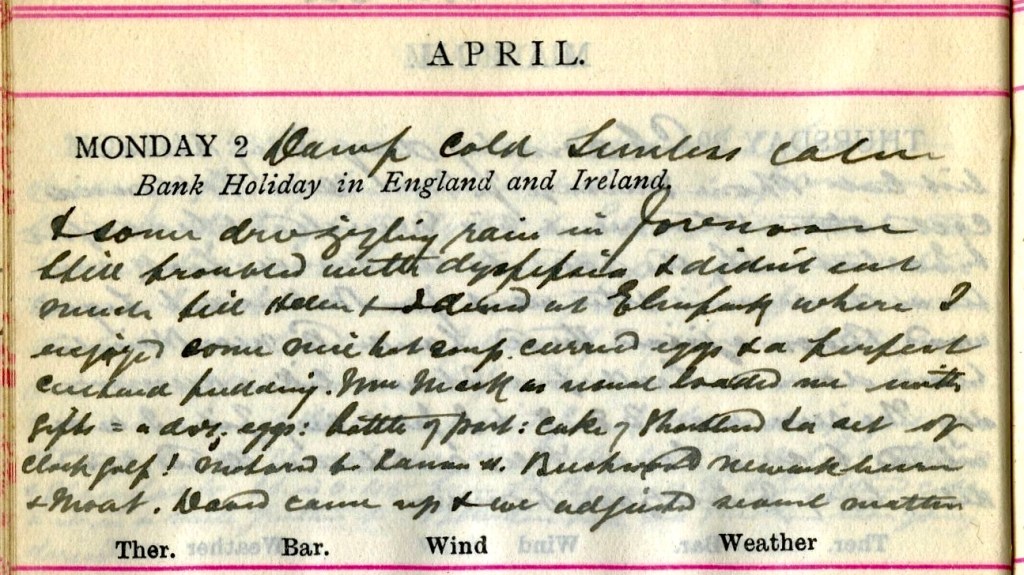 APRIL.
MONDAY 2 Damp cold Sunless calm
Bank Holiday in England and Ireland.
& some drizzling rain in forenoon
Still troubled with dyspepsia & didn't eat
much till Helen & I dined at Elmpark where I
enjoyed some nice hot soup curried eggs & a perfect
custard pudding. Mrs Mack as usual loaded me with
gifts = a doz. eggs: bottle of port: cake of Shortbread & a set of
clock golf! Motored to Lanark Newark
& Moat. David came up & we adjusted several matters
Ther. Bar. Wind Weather